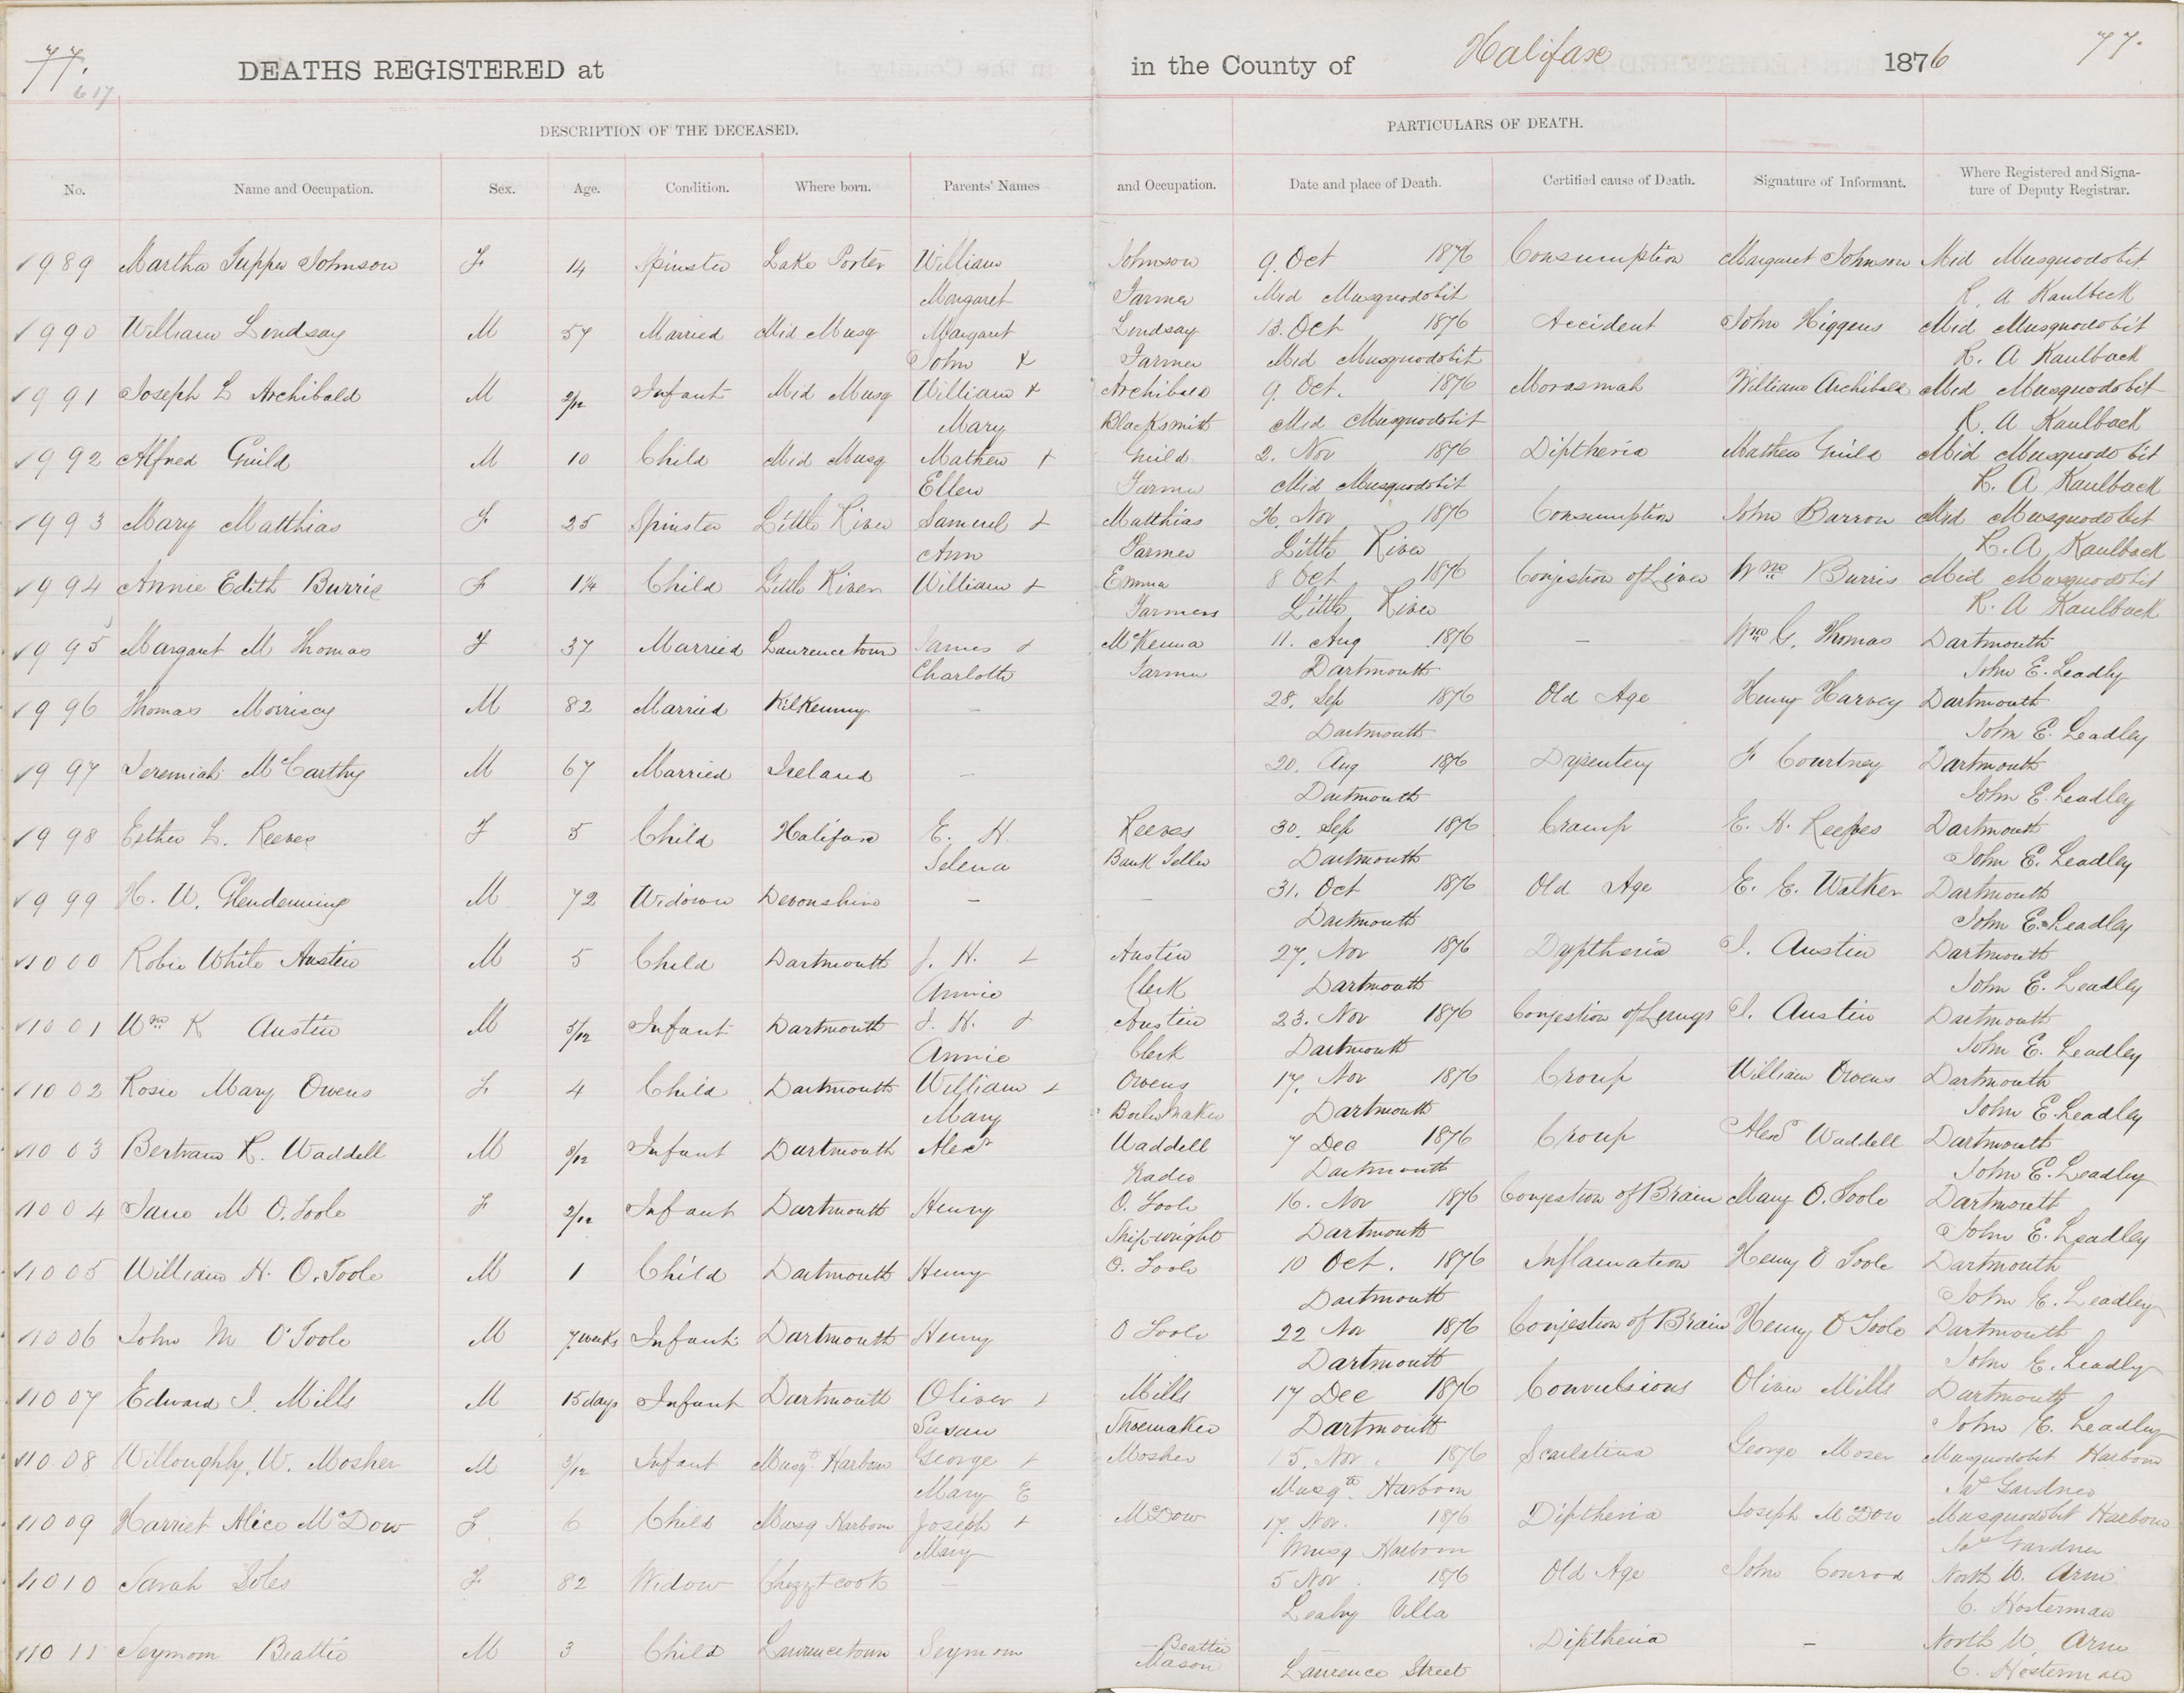 77. 77.
617
DEATHS REGISTERED at in the County of Halifax 1876
DESCRIPTION OF THE DECEASED. PARTICULARS OF DEATH.
No. Name and Occupation. Sex. Age. Condition. Where born. Parents' Names and Occupation. Date and place of Death. Certified cause of Death. Signature of Informant. Where Registered and Signa-
ture of Deputy Registrar.
989 Martha Tupper Johnson F 14 Spinster Lake Porter William Johnson 9. Oct 1876 Consumption Margaret Johnson Mid Musquodobit
Margaret Farmer Mid Musquodobit R. A Kaulback
990 William Lindsay M 57 Married Mid Musq Margaret Lindsay 13. Oct 1876 Accident John Higgens Mid Musquodobit
John + Farmer Mid Musquodobit R. A Kaulback
991 Joseph L Archibald M 2/12 Infant Mid Musq William + Archibald 9. Oct. 1876 Morasmah William Archibald Mid Musquodobit
Mary Blacksmith Mid Musquodobit R. A Kaulback
992 Alfred Guild M 10 Child Mid Musq Mathew + Guild 2. Nov 1876 Diptheria Mathew Guild Mid Musquodobit
Ellen Farmer Mid Musquodobit R. A Kaulback
993 Mary Matthias F 25 Spinster Little River Samuel + Matthias 26. Nov 1876 Consumption John Barron Mid Musquodobit
Ann Farmer Little River R. A. Kaulback
994 Annie Edith Burris F 1 1/4 Child Little River William + Emma 8 Oct 1876 Conjestion of Liver Wm Burris Mid Musquodobit
Farmers Little River R. A Kaulback
995 Margaret M Thomas F 37 Married Laurencetown James + McKenna 11. Aug 1876 — Wm G. Thomas Dartmouth
Charlotte Farmer Dartmouth John E. Leadly
996 Thomas Morriscy M 82 Married Kilkenny — 28. Sep 1876 Old Age Henry Harvey Dartmouth
Dartmouth John E. Leadley
997 Jeremiah McCarthy M 67 Married Ireland — 20. Aug 1876 Dysentery F Courtney Dartmouth
Dartmouth John E. Leadley
998 Esther L. Reeves F 5 Child Halifax E. H. Reeves 30. Sep 1876 Cramp E. H. Reeves Dartmouth
Selena Bank Teller Dartmouth John E. Leadley
999 H. W. Glendenning M 72 Widown Devonshire — — 31. Oct 1876 Old Age E. E. Walker Dartmouth
Dartmouth John E. Leadley
1000 Robie White Austin M 5 Child Dartmouth J. H. + Austin 27. Nov 1876 Dyptheria J. Austin Dartmouth
Annie Clerk Dartmouth John E. Leadley
1001 Wm K Austin M 5/12 Infant Dartmouth J. H. + Austin 23. Nov 1876 Conjestion of Lungs J. Austin Dartmouth
Annie Clerk Dartmouth John E. Leadley
1002 Rosie Mary Owens F 4 Child Dartmouth William + Owens 17. Nov 1876 Croup William Owens Dartmouth
Mary Boiler Maker Dartmouth John E. Leadley
1003 Bertram R. Waddell M 8/12 Infant Dartmouth Alexr Waddell 7 Dec 1876 Croup Alexr Waddell Dartmouth
Dartmouth John E. Leadley
1004 Jane M O. Toole F 2/12 Infant Dartmouth Henry O. Toole 16. Nov 1876 Conjestion of Brain Mary O. Toole Dartmouth
Shipwright Dartmouth John E. Leadley
1005 William H. O. Toole M 1 Child Dartmouth Henry O. Toole 10 Oct. 1876 Inflamation Henry O Toole Dartmouth
Dartmouth John E. Leadley
1006 John M O'Toole M 7 weeks Infant Dartmouth Henry O Toole 22 Nov 1876 Conjestion of Brain Henry O Toole Dartmouth
Dartmouth John E. Leadly
1007 Edward J. Mills M 15 days Infant Dartmouth Oliver + Mills 17 Dec 1876 Convulsions Oliver Mills Dartmouth
Susan Shoemaker Dartmouth John E. Leadley
1008 Willoughby. W. Mosher M 3/12 Infant Musqt Harbour George + Mosher 15. Nov. 1876 Scarlatina George Moser Musquodobit Harbour
Mary E Musqt Harbour Gardner
1009 Harriet Alice McDow F 6 Child Musq Harbour Joseph + McDow 17. Nov. 1876 Diptheria Joseph McDow Musquodobit Harbour
Mary Musq Harbour Gardner
1010 Sarah Soles F 82 Widow Chezzetcook — 5 Nov. 1876 Old Age John Conrod North W. Arm
Leahy Villa C. Hosterman
1011 Seymour Beattie M 3 Child Laurencetown Seymour Beattie Diptheria — North W. Arm
Mason Laurence Street C. Hosterman